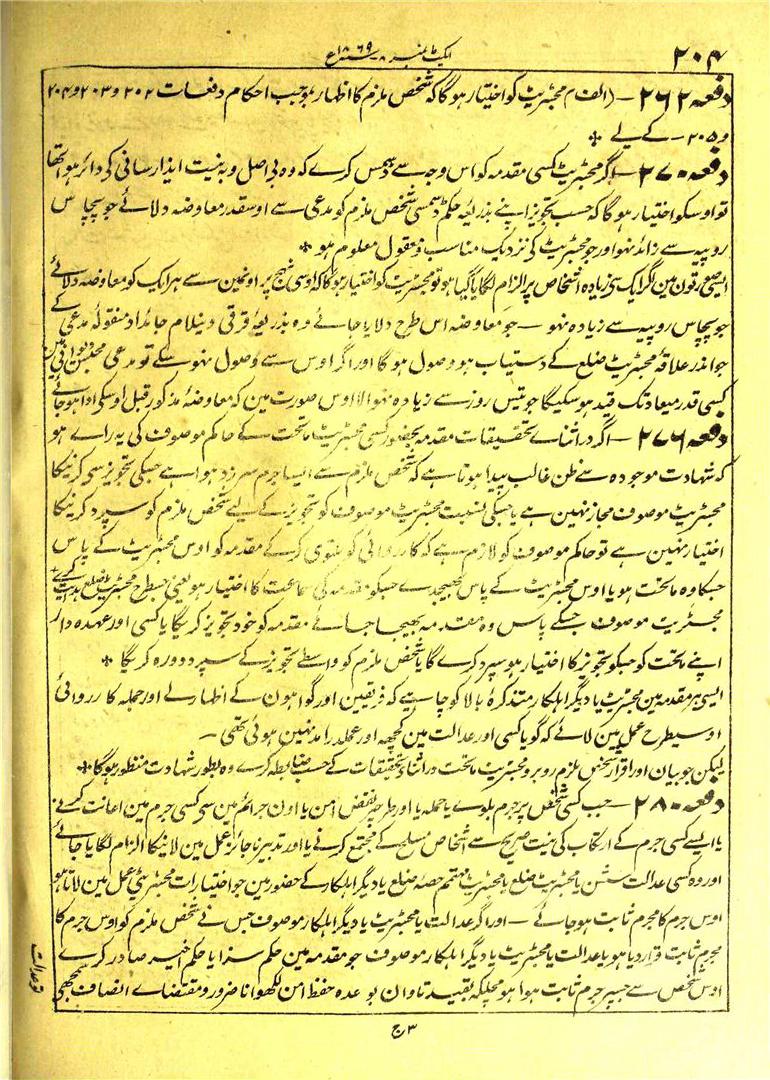 ۲۰۴
ایکٹ نمبر ۸ سنہ ۱۸۶۹ع
دفعہ ۲۶۲ – (الف) مجسٹریٹ کو اختیار ہوگا کہ شخص ملزم کا اظہار بموجب احکام دفعات ۲۰۲ و ۲۰۳ و ۲۰۴
و ۲۰۵ – کے لے *
دفعہ ۲۷۰ – اگر مجسٹریٹ کسی مقدمہ کو اس وجہ سے ڈسمس کرے کہ وہ بی اصل و بہ نیت ایذا رسانی کی دائر ہوا تھا
تو اوسکو اختیار ہوگا کہ حسب تجویز اپنے بذریعہ حکم ڈسمسی شخص ملزم کو مدعی سے اوسقدر معاوضہ دلائے جو پچاس
روپیہ سے زائد نہو اور جو مجسٹریٹ کی نزدیک مناسب و معقول معلوم ہو *
ایسی صورتون مین اگر ایک سی زیادہ اشخاص پر الزام لگایا گیا ہو تو مجسٹریٹ کو اختیار ہوگا کہ اوسی نہج پر اونمین سے ہر ایک کو معاوضہ دلائے
جو پچاس روپیہ سے زیادہ نہو – جو معاوضہ اس طرح دلایا جائے وہ بذریعۂ قرقی و نیلام جائداد منقولۂ مدعی کے
جو اندر علاقۂ مجسٹریٹ ضلع کے دستیاب ہو وصول ہوگا اور اگر اوس سے وصول نہو سکے تو مدعی محبس دیوانی مین
کسی قدر میعاد تک قید ہو سکیگا جو تیس روز سے زیادہ نہو الا اوس صورت مین کہ معاوضۂ مذکور قبل اوسکی ادا ہو جائے
دفعہ ۲۷۶ – اگر در اثنائے تحقیقات مقدمہ بحضور کسی مجسٹریٹ ماتحت کے حاکم موصوف کی یہ راے ہو
کہ شہادت موجودہ سے ظن غالب پیدا ہوتا ہے کہ شخص ملزم سے ایسا جرم سرزد ہوا ہے جسکی تجویز سی کرنیکا
مجسٹریٹ موصوف مجاز نہین ہے یا جسکی نسبت مجسٹریٹ موصوف کو تجویز کے لیے شخص ملزم کو سپرد کرنیکا
اختیار نہین ہے تو حاکم موصوف کو لازم ہے کہ کارروائی کو ملتوی کر کے مقدمہ کو اوس مجسٹریٹ کے پاس
جسکا وہ ماتحت ہو یا اوس مجسٹریٹ کے پاس بھیجدے جسکو مقدمہ کی سماعت کا اختیار ہو یعنی جسطرح مجسٹریٹ ضلع ہدایت کرے *
مجسٹریٹ موصوف جسکے پاس وہ مقدمہ بھیجا جائے مقدمہ کو خود تجویز کریگا یا کسی اور عہدہ دار
اپنے ماتحت کو جسکو تجویز کا اختیار ہو سپرد کرے گا یا شخص ملزم کو واسطے تجویز کے سپرد دورہ کریگا *
ایسی ہر مقدمہ مین مجسٹریٹ یا دیگر اہلکار متذکرۂ بالا کو چاہیے کہ فریقین اور گواہون کے اظہار لے اور جملہ کارروائی
اوسیطرح عمل مین لائے کہ گویا کسی اور عدالت مین کچھہ اور عملدرآمد نہین ہوئی تھی –
لیکن جو بیان اور اقرار شخص ملزم روبرو مجسٹریٹ ماتحت در اثنائے تحقیقات کے حسب ضابطہ کرے وہ بطور شہادت منظور ہوگا *
دفعہ ۲۸۰ – جب کسی شخص پر جرم بلوے یا حملہ یا اور طرح پر نقض امن یا اون جرائم مین سی کسی جرم مین اعانت کرنے
یا ایسے کسی جرم کے ارتکاب کی نیت صریح سے اشخاص مسلح کے مجتمع کرنے یا اور تدبیر ناجائز عمل مین لانیکا الزام لگایا جائے
اور وہ کسی عدالت سشن یا مجسٹریٹ ضلع یا مجسٹریٹ مہتمم حصۂ ضلع یا دیگر اہلکار کے حضور مین جو اختیارات مجسٹریٹی عمل مین لاتا ہو
اوس جرم کا مجرم ثابت ہو جائے – اور اگر عدالت یا مجسٹریٹ یا دیگر اہلکار موصوف جس نے شخص ملزم کو اوس جرم کا
مجرم ثابت قرار دیا ہو یا عدالت یا مجسٹریٹ یا دیگر اہلکار موصوف جو مقدمہ مین حکم سزا یا حکم اخیر صادر کرے
اوس شخص سے جسپر جرم ثابت ہوا ہو مچلکہ بقید تاوان بوعدہ حفظ امن لکھوانا ضرور و مقتضائے انصاف سمجھے
تو عدالت
۳ ج